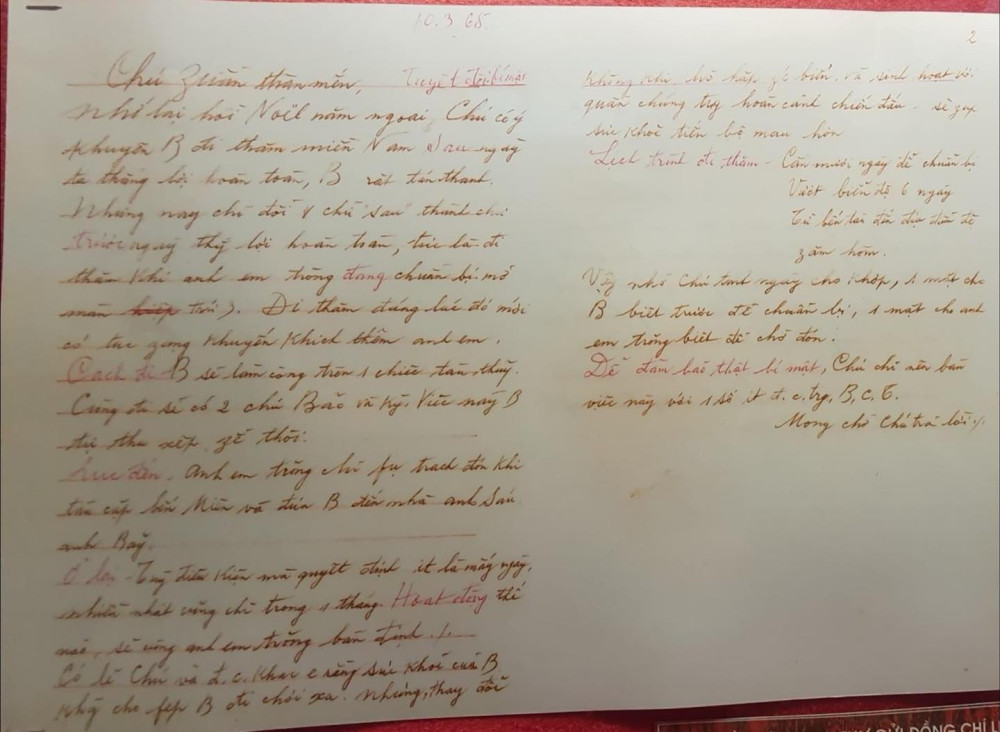 10.3.68.
Chú Zuân thân mến, Tuyệt đối bí mật
Nhớ lại hồi Nôël năm ngoái, Chú có ý
khuyên B đi thăm miền Nam sau ngày
ta thắng lợi hoàn toàn, B rất tán thành.
Nhưng nay chỉ đổi 1 chữ "sau" thành chữ
trước ngày thắng lợi hoàn toàn, tức là đi
thăm khi anh em trỏng đang chuẩn bị mở
màn thứ 3. Đi thăm đúng lúc đó mới
có tác zụng khuyến khích thêm anh em.
Cách đi - B sẽ làm công trên 1 chiếc tàu thuỷ.
Cùng đi sẽ có 2 chú Bảo và Kỳ. Việc này B
tự thu xếp, zễ thôi.
Lúc đến. Anh em trỏng chỉ fụ trách đón khi
tàu cập bến Miên và đưa B đến nhà anh Sáu
anh Bảy.
Ở lại - Tuỳ điều kiện mà quyết định ít là mấy ngày,
nhiều nhất cũng chỉ trong 1 tháng. Hoạt động thế
nào, sẽ cùng anh em trỏng bàn định ./.
Có lẽ Chú và đ.c. khác e rằng sức khoẻ của B
không cho fép B đi chơi xa. Nhưng, thay đổi
2
không khí, hô hấp zó biển, và sinh hoạt với
quần chúng trg hoàn cảnh chiến đấu - sẽ zúp
sức khoẻ tiến bộ mau hơn
Lịch trình đi thăm - Cần mươi ngày để chuẩn bị
Vượt biển độ 6 ngày
Từ bến lại đến địa điểm độ
zăm hôm.
Vậy nhờ Chú tính ngày cho khớp, 1 mặt cho
B biết trước để chuẩn bị, 1 mặt cho anh
em trỏng biết để chờ đón.
Để đảm bảo thật bí mật, Chú chỉ nên bàn
việc này với 1 số ít đ.c. trg. B.C.T.
Mong chờ Chú trả lời ./.
GỬI ĐỒNG CHÍ